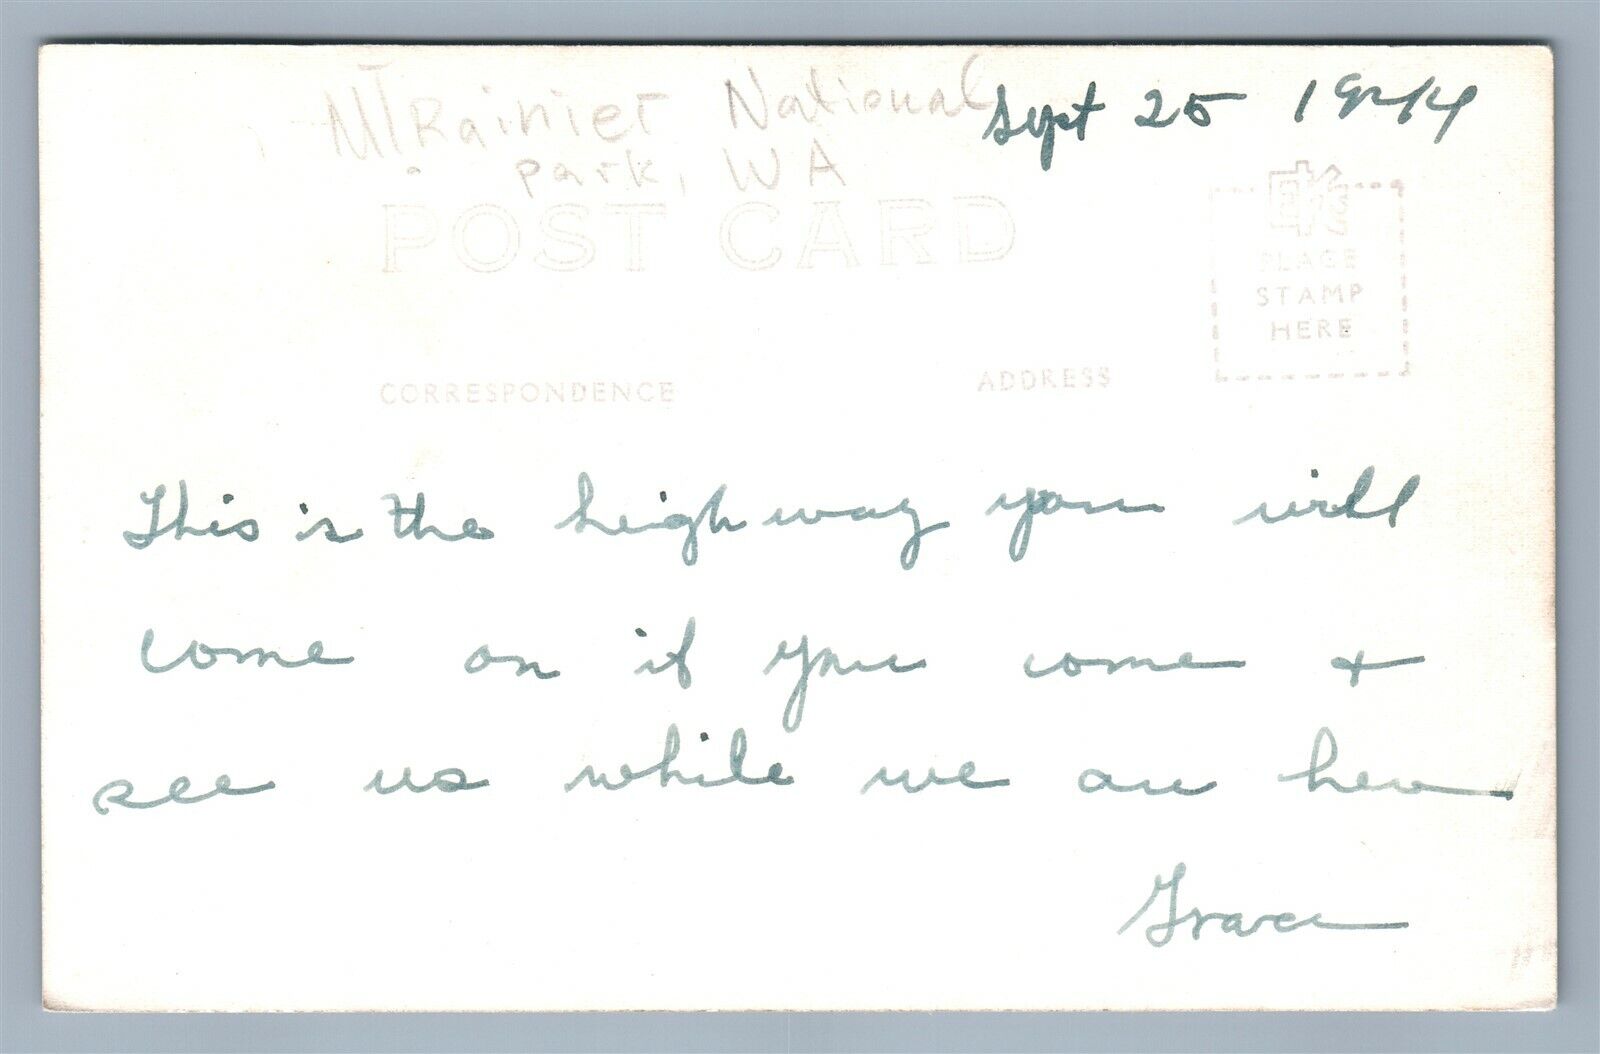 Mt. Rainier National
Park, WA
Sept 25 1944
POST CARD
EKC
PLACE
STAMP
HERE
CORRESPONDENCE
ADDRESS
This is the heighway you will
come on if you come +
see us while we are here
Grace